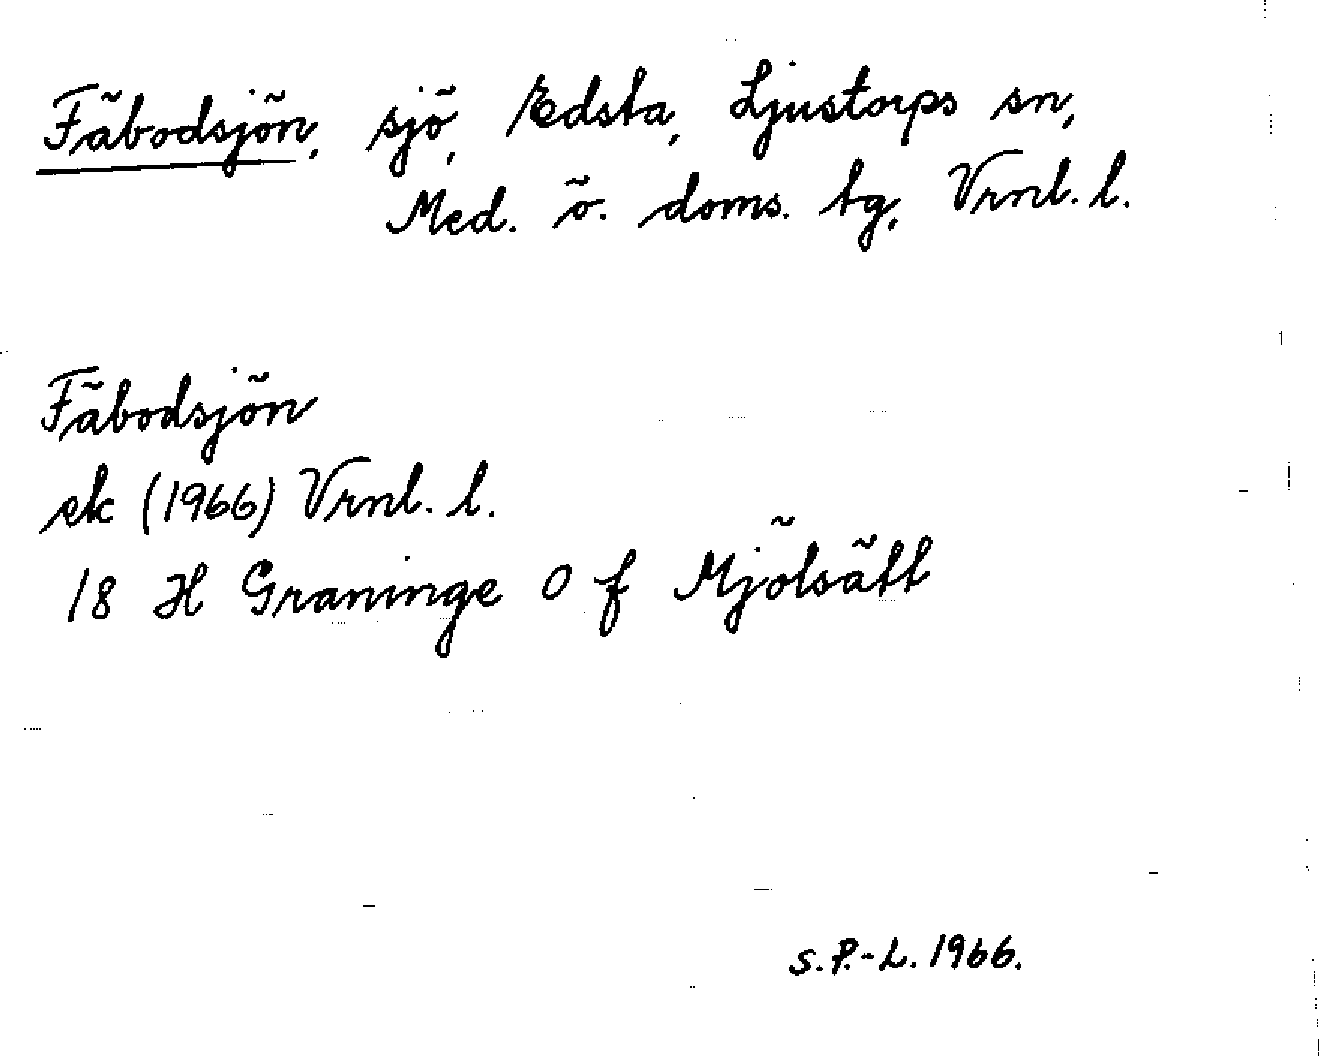 Fäbodsjön, sjö, Edsta, Ljustorps sn,
Med. ö. doms. tg, Vrnl. l.
Fäbodsjön
ek (1966) Vrnl. l.
18 H Graninge O f Mjölsätt
S.P.-L. 1966.